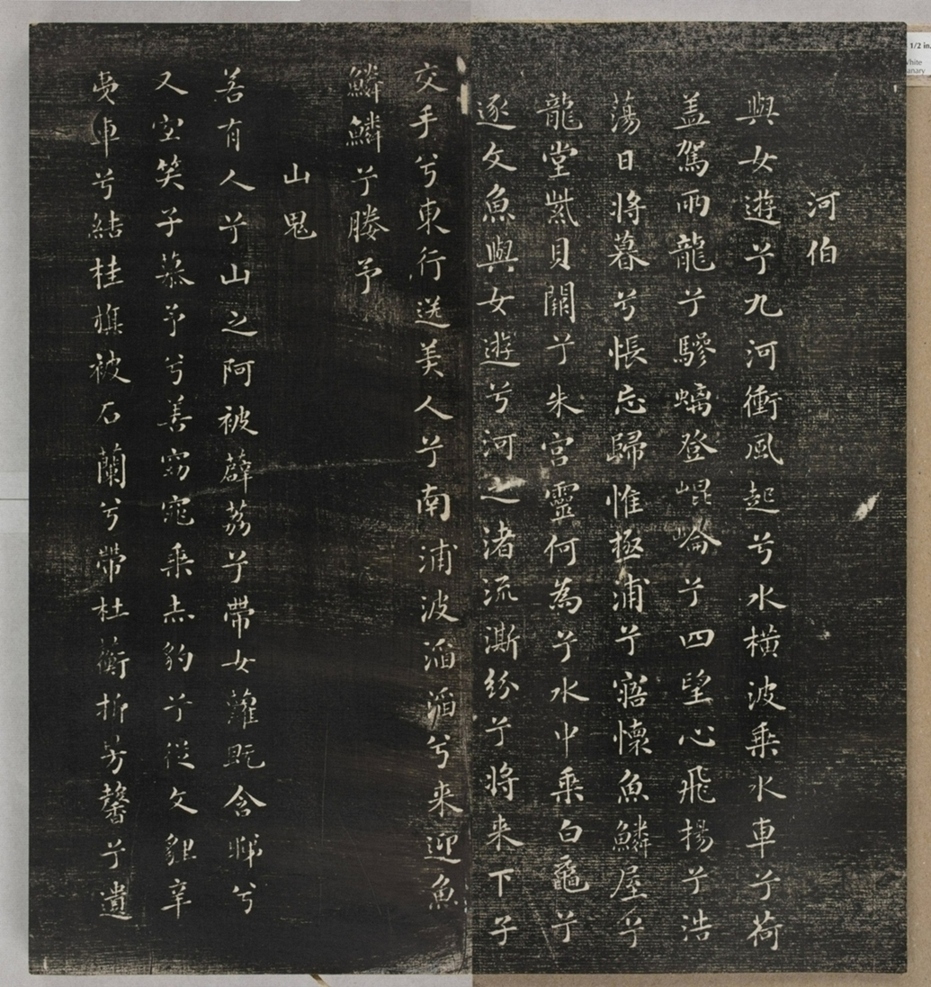 河伯
與女遊兮九河衝風起兮水橫波乘水車兮荷
盖駕兩龍兮驂螭登崐崘兮四望心飛揚兮浩
蕩日將暮兮悵忘歸惟極浦兮寤懷魚鱗屋兮
龍堂紫貝闕兮朱宮靈何為兮水中乘白黿兮
逐文魚與女遊兮河之渚流澌紛兮將来下子
交手兮東行送美人兮南浦波滔滔兮来迎魚
鱗鱗兮媵予
山鬼
若有人兮山之阿被薜荔兮帶女蘿既含睇兮
又宜笑子慕予兮善窈窕乘赤豹兮從文貍辛
夷車兮結桂旗被石蘭兮帶杜衡折芳馨兮遺
1/2 in.